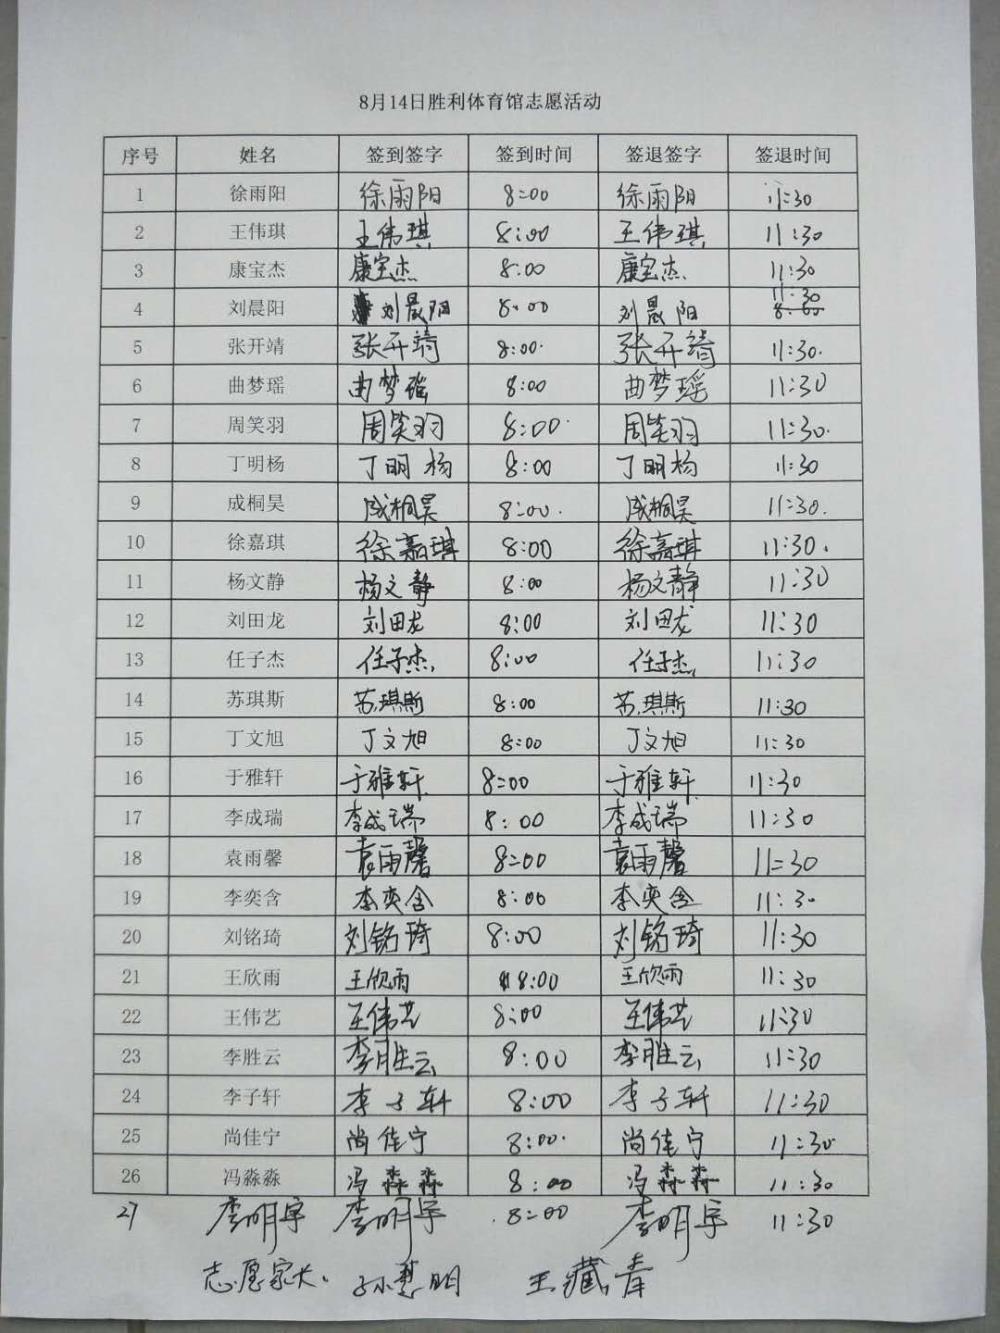 8月14日胜利体育馆志愿活动
序号 姓名 签到签字 签到时间 签退签字 签退时间
1 徐雨阳 徐雨阳 8:00 徐雨阳 11:30
2 王伟琪 王伟琪 8:00 王伟琪 11:30
3 康宝杰 康宝杰 8:00 康宝杰 11:30
4 刘晨阳 刘晨阳 8:00 刘晨阳 11:30 8:00
5 张开靖 张开靖 8:00 张开靖 11:30
6 曲梦瑶 曲梦瑶 8:00 曲梦瑶 11:30
7 周笑羽 周笑羽 8:00 周笑羽 11:30
8 丁明杨 丁明杨 8:00 丁明杨 11:30
9 成桐昊 成桐昊 8:00 成桐昊 11:30
10 徐嘉琪 徐嘉琪 8:00 徐嘉琪 11:30
11 杨文静 杨文静 8:00 杨文静 11:30
12 刘田龙 刘田龙 8:00 刘田龙 11:30
13 任子杰 任子杰 8:00 任子杰 11:30
14 苏琪斯 苏琪斯 8:00 苏琪斯 11:30
15 丁文旭 丁文旭 8:00 丁文旭 11:30
16 于雅轩 于雅轩 8:00 于雅轩 11:30
17 李成瑞 李成瑞 8:00 李成瑞 11:30
18 袁雨馨 袁雨馨 8:00 袁雨馨 11:30
19 李奕含 李奕含 8:00 李奕含 11:30
20 刘铭琦 刘铭琦 8:00 刘铭琦 11:30
21 王欣雨 王欣雨 8:00 王欣雨 11:30
22 王伟艺 王伟艺 8:00 王伟艺 11:30
23 李胜云 李胜云 8:00 李胜云 11:30
24 李子轩 李子轩 8:00 李子轩 11:30
25 尚佳宁 尚佳宁 8:00 尚佳宁 11:30
26 冯淼淼 冯淼淼 8:00 冯淼淼 11:30
27 李明宇 李明宇 8:00 李明宇 11:30
志愿家长: 孙慧明 王藏青